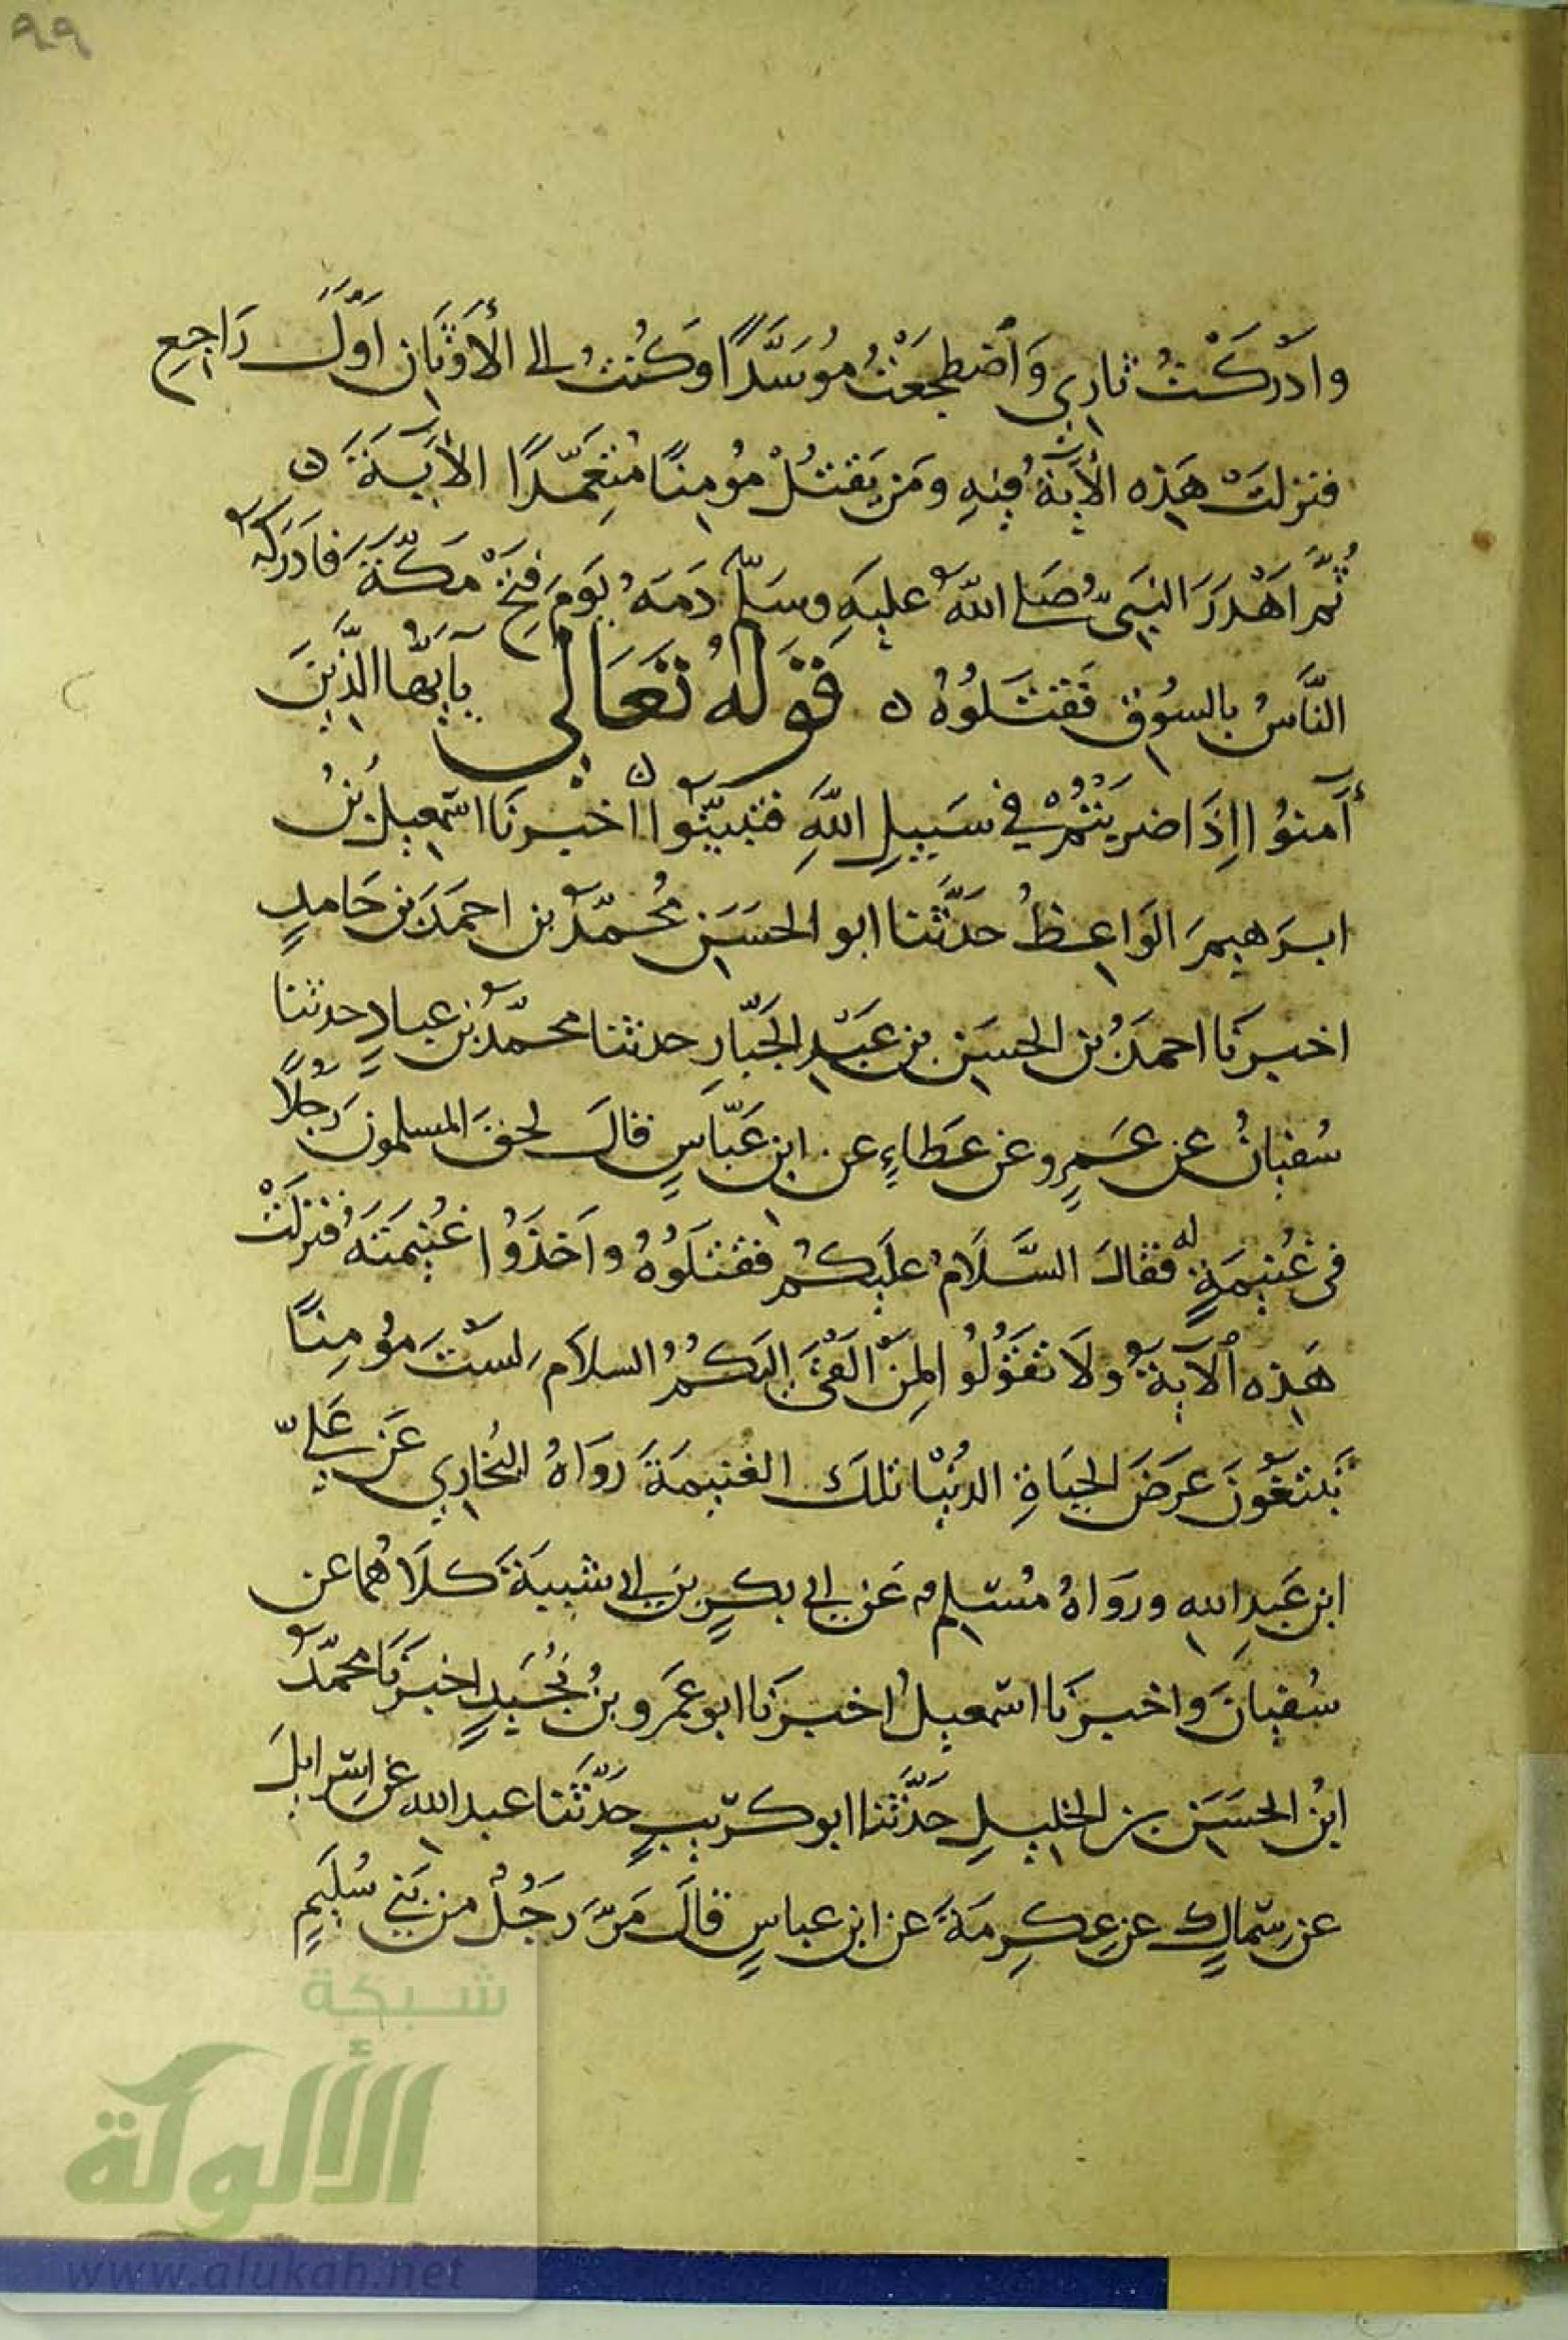 ٩٩
وادْرَكْتُ ثارِي وَٱضطجعْتُ مُوَسَّدًا وَكُنتُ الى الأَوْثَانِ اَوَّلَ رَاجِعِ
فنزلتْ هَذِه الأَيَةُ فِيهِ وَمَن يَقتُلْ مُؤمِنًا مُتَعَمِّدًا الأَيَةَ ن
ثُمَّ اَهْدَرَ النبَىُّ صَلى اللَّهُ عليهِ وسَلّم دَمَهُ يَوَمَ فتْحِ مَكّةَ فادَرَكَهُ
النَّاسُ بالسُوقِ فَقتَلُوُهُ ن قَوْلُهُ تَعَالَى يآيّها الذّيِنَ
آمنوُا اِذَا ضربْتُمْ في سَبيلِ اللَّهِ فتبيّنُوا ن اخبرنَا اسمعيلُ بنُ
ابرَهيمَ الوَاعِظُ حدَّثنا ابو الحسَن مُحمّدُ بن احمَدَ بن حَامدٍ
اخبرنَا احمدُ بن الحسَنِ بن عَبْدِ الجَبّارِ حدثنا محمّدُ بن عبادٍ حدثنا
سُفيانُ عن عَمرٍو عَن عَطاءٍ عن ابنِ عَبّاسٍ قالَ لحقَ المسلمونَ رَجُلًا
فى غُنيمَةٍ له فقالَ السَّلَامُ عليَكُمْ فقتَلَوُهُ واَخذَوُا غُنيمَتَهُ فنزلَتْ
هَذِه ٱلآيَةُ ولَا تقَوُلُوا لِمَنْ القَىَ اليَكُمُ السلاَمَ لسْتَ مؤمِنًا
تَبتغُونَ عرَضَ الحيَاةِ الدنُيْا تلكَ الغنيمَةَ رَوَاهُ البُخارِي عَن عَلِيّ
ابن عَبدِ اللهِ ورَوَاهُ مُسْلِم عَن ابى بكرٍ بن ابى شَيبَةَ كلَاهُما عن
سُفيانَ واخبرنَا اسْمعيلُ اخبرَنا ابو عمَرو بنُ نُجَيدٍ اخبرَنَا محمّدُ
ابنُ الحسَن بن الخليلِ حَدَّثنا ابو كرَيبٍ حَدَّثنا عبدُ اللهِ عَن اِسْرايلَ
عن سِمَاكٍ عن عِكرِمَةَ عن ابن عباسٍ قالَ مَرَّ رَجُلُ من بَنِي سُليَمٍ
شبكة
الألوكة
www.alukah.net